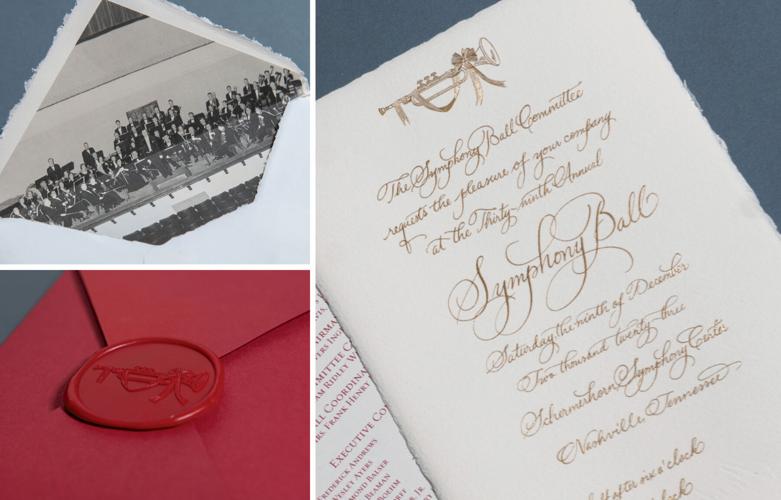 The Symphony Ball Committee
requests the pleasure of your company
at the Thirty-ninth Annual
Symphony Ball
Saturday, the ninth of December
Two thousand twenty-three
Schermerhorn Symphony Center
Nashville, Tennessee
half after six o'clock
o'clock
AM RIDLEY
FRANK HENRY
EXECUTIVE CO
FREDERICK ANDREWS
WESLEY AYERS
MOND BALSER
BEAMAN
BOEHM
JR.